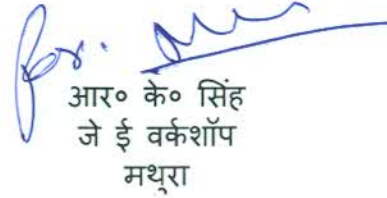 for.
आर० के० सिंह
जे ई वर्कशॉप
मथुरा